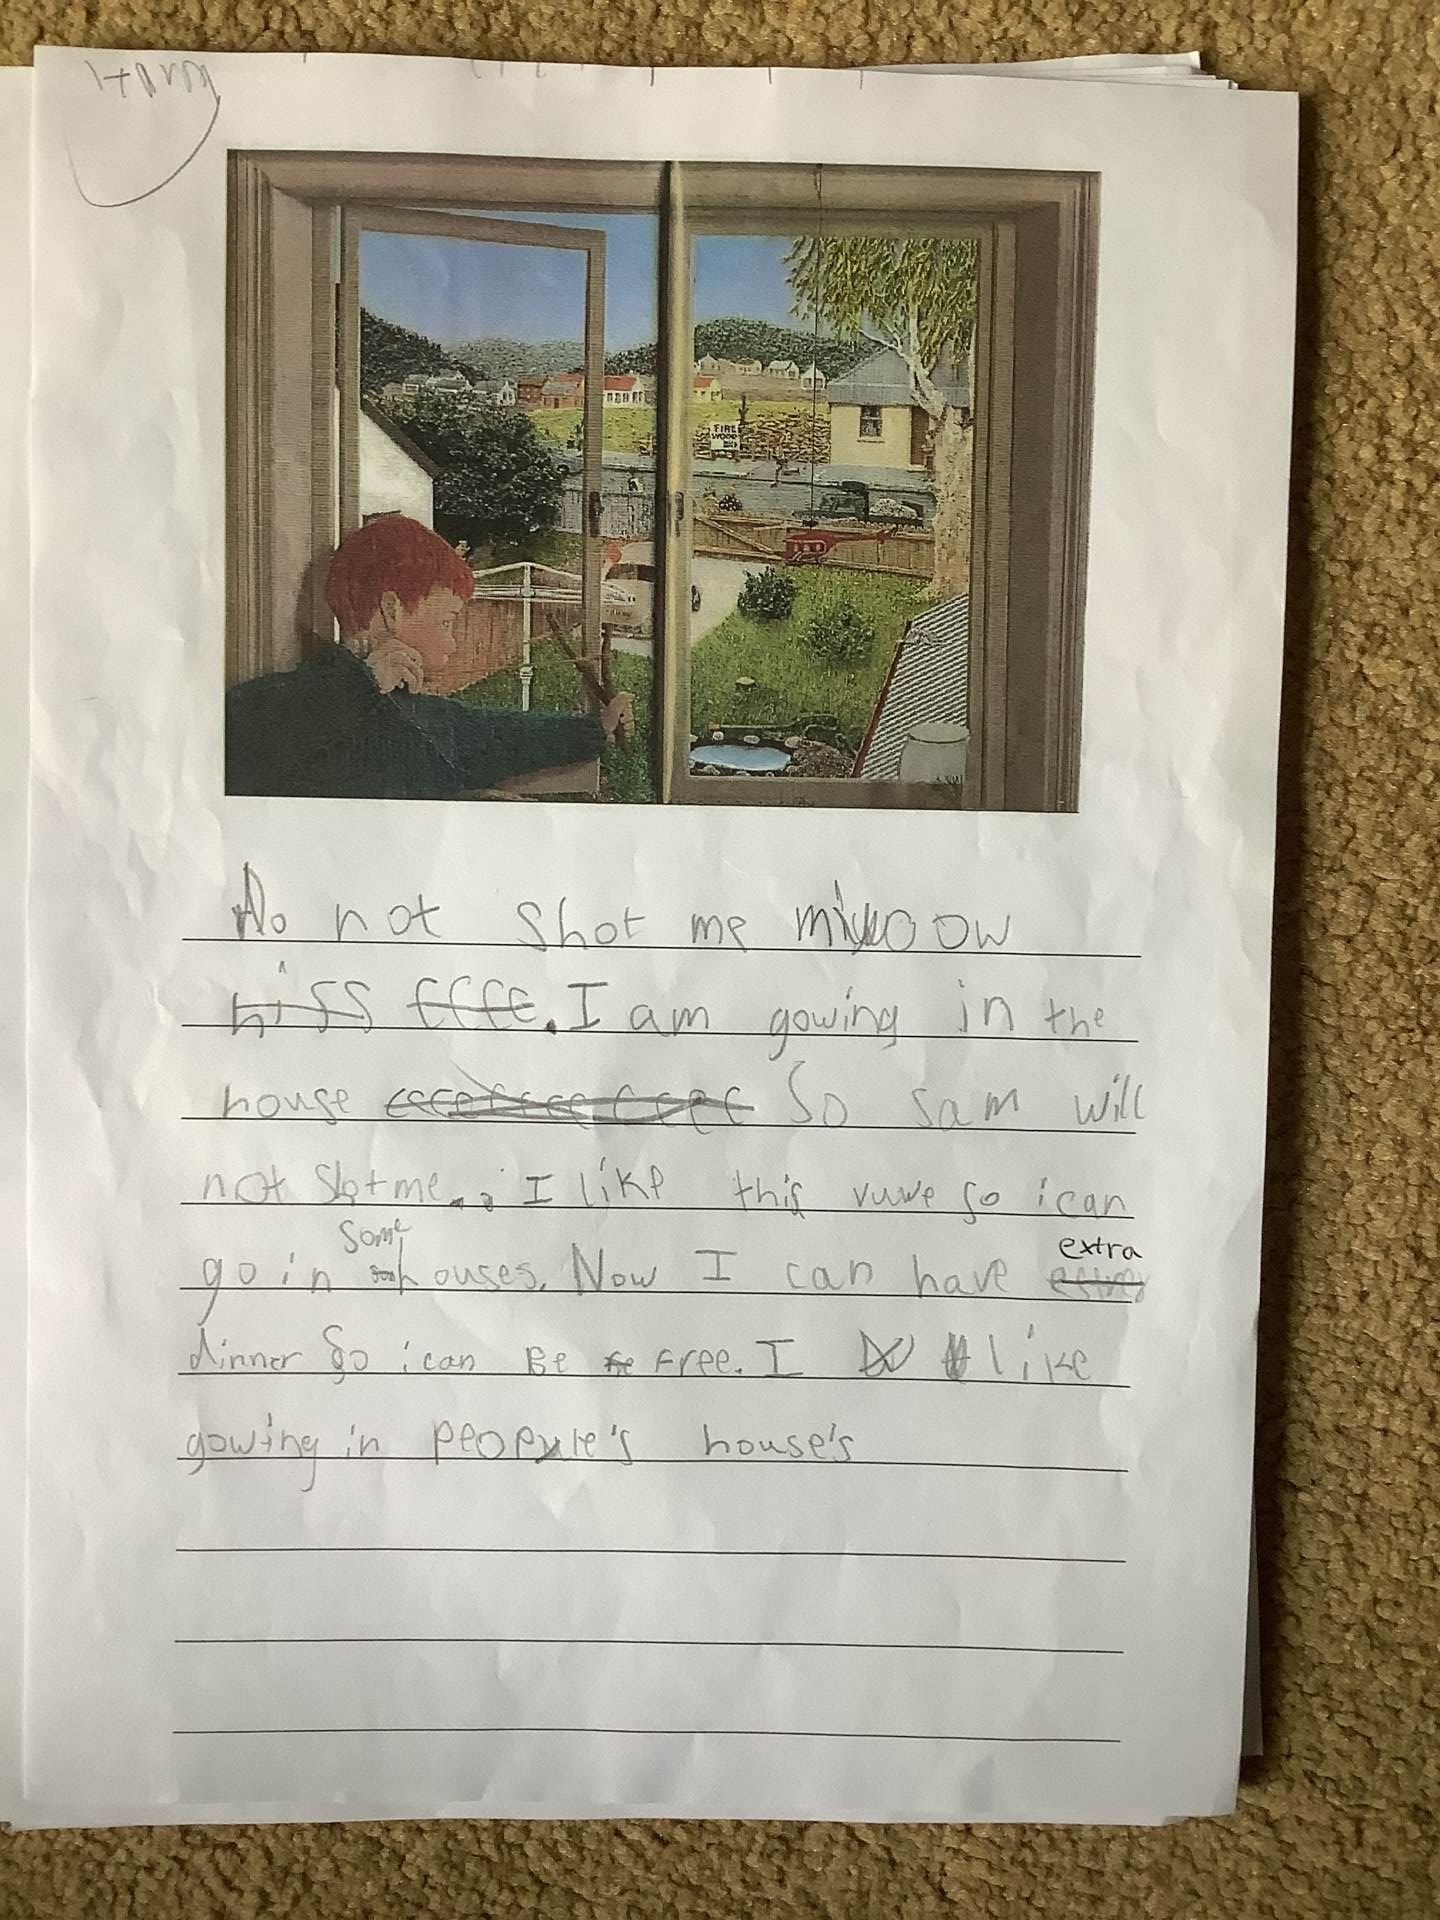 FIRE
WOOD
Do not shot me miyoow
hiss ffff. I am gowing in the
house So sam will
not shot me.. I like this vuwe so i can
some
extra
go in houses. Now I can have
dinner So i can Be Free. I like
gowing in people's house's